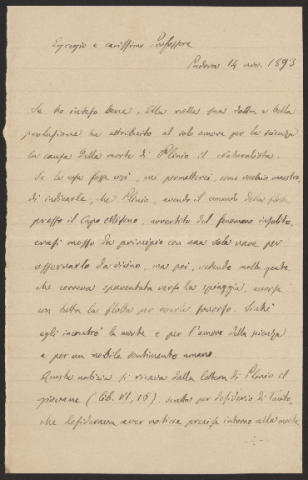 Egregio e carissimo Professore
Padova 14 nov. 1893
Se ho inteso bene, Ella nella sua dotta e bella
prolusione ha attribuito al solo amore per la scienza
la causa della morte di Plinio il naturalista.
Se la cosa fosse così, mi permetterei, come vecchio maestro,
di indicarle, che Plinio, avendo il comando della flotta
presso il Capo Miseno, avvertito del fenomeno insolito,
erasi mosso da principio con una sola nave per
osservarlo da vicino, ma poi, vedendo molta gente,
che correva spaventata verso la spiaggia, accorse
con tutta la flotta per recarle soccorso. Sicchè
egli incontrò la morte e per l'amore della scienza
e per un nobile sentimento umano.
Questa notizia si ricava dalla lettera di Plinio il
giovane (lib. VI, 16), scritta per desiderio di Tacito,
che desiderava aver notizie precise intorno alla morte